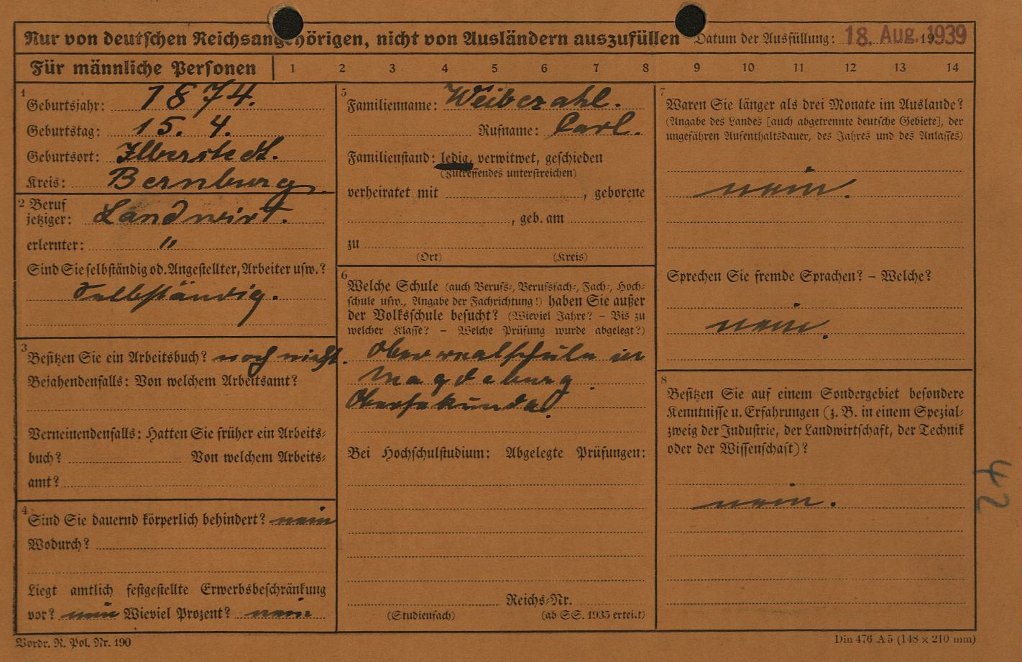 Nur von deutschen Reichsangehörigen, nicht von Ausländern auszufüllen Datum der Ausfüllung: 18. Aug. 1939
Für männliche Personen 1 2 3 4 5 6 7 8 9 10 11 12 13 14
1 Geburtsjahr: 1874.
Geburtstag: 15. 4.
Geburtsort: Ilberstedt.
Kreis: Bernburg.
2 Beruf
jetziger: Landwirt.
erlernter: "
Sind Sie selbständig od. Angestellter, Arbeiter usw.?
Selbständig.
3 Besitzen Sie ein Arbeitsbuch? noch nicht.
Bejahendenfalls: Von welchem Arbeitsamt?
Verneinendenfalls: Hatten Sie früher ein Arbeits-
buch? Von welchem Arbeits-
amt?
4 Sind Sie dauernd körperlich behindert? nein
Wodurch?
Liegt amtlich festgestellte Erwerbsbeschränkung
vor? nein Wieviel Prozent? nein
5 Familienname: Weiberzahl.
Rufname: Carl.
Familienstand: ledig, verwitwet, geschieden
(Zutreffendes unterstreichen)
verheiratet mit , geborene
, geb. am
zu
(Ort) (Kreis)
6 Welche Schule (auch Berufs-, Berufsfach-, Fach-, Hoch-
schule usw., Angabe der Fachrichtung!) haben Sie außer
der Volksschule besucht? (Wieviel Jahre? – Bis zu
welcher Klasse? – Welche Prüfung wurde abgelegt?)
Oberrealschule in
Magdeburg
Obersekunda.
Bei Hochschulstudium: Abgelegte Prüfungen:
Reichs-Nr.
(Studienfach) (ab SS. 1935 erteilt)
7 Waren Sie länger als drei Monate im Auslande?
(Angabe des Landes [auch abgetrennte deutsche Gebiete], der
ungefähren Aufenthaltsdauer, des Jahres und des Anlasses)
nein.
Sprechen Sie fremde Sprachen? – Welche?
nein.
8 Besitzen Sie auf einem Sondergebiet besondere
Kenntnisse u. Erfahrungen (z. B. in einem Spezial-
zweig der Industrie, der Landwirtschaft, der Technik
oder der Wissenschaft)?
nein.
42
Vordr. R. Pol. Nr. 190 Din 476 A 5 (148 x 210 mm)